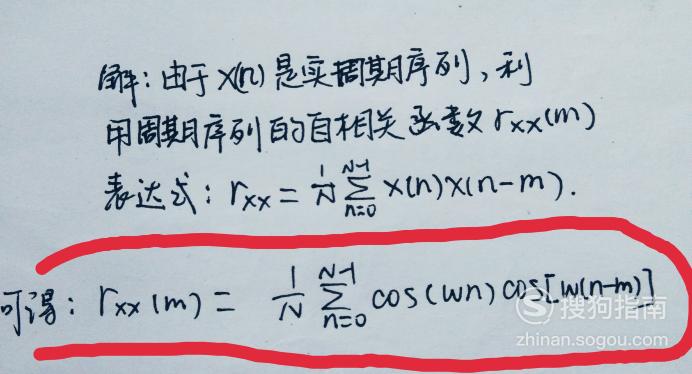 解:由于x(n)是实周期序列,利
用周期序列的自相关函数rxx(m)
表达式:rxx=1/N∑_{n=0}^{N-1}x(n)x(n-m).
可得:rxx(m)=1/N∑_{n=0}^{N-1}cos(wn)cos[w(n-m)]
搜狗指南
zhinan.sogou.com